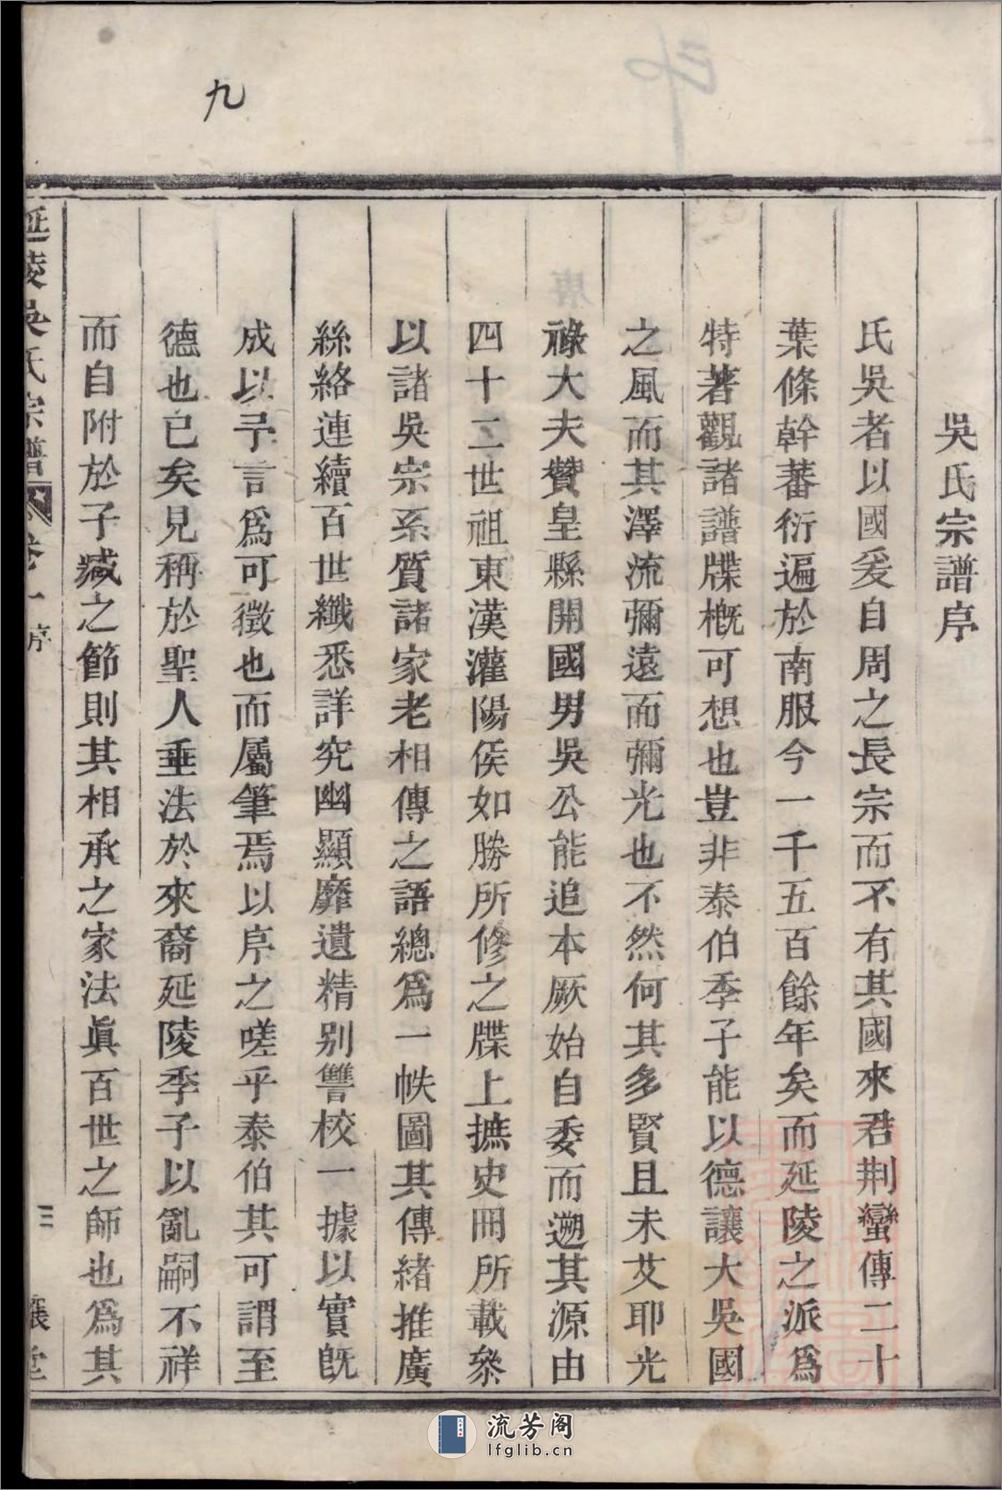 九
吳氏宗譜序
氏吳者以國爰自周之長宗而不有其國來君荆蠻傳二十
葉條幹蕃衍遍於南服今一千五百餘年矣而延陵之派爲
特著觀諸譜牒槪可想也豈非泰伯季子能以德讓大吳國
之風而其澤流彌遠而彌光也不然何其多賢且未艾耶光
祿大夫贊皇縣開國男吳公能追本厥始自委而遡其源由
四十二世祖東漢灌陽侯如勝所修之牒上摭史冊所載叅
以諸吳宗系質諸家老相傳之語總爲一帙圖其傳緒推廣
絲絡連續百世纖悉詳究幽顯靡遺精别讐校一據以實旣
成以予言爲可徵也而屬筆焉以序之嗟乎泰伯其可謂至
德也已矣見稱於聖人垂法於來裔延陵季子以亂嗣不祥
而自附於子臧之節則其相承之家法眞百世之師也爲其
延陵吳氏宗譜 卷一 序 三 堂
流芳阁
lfglib.cn